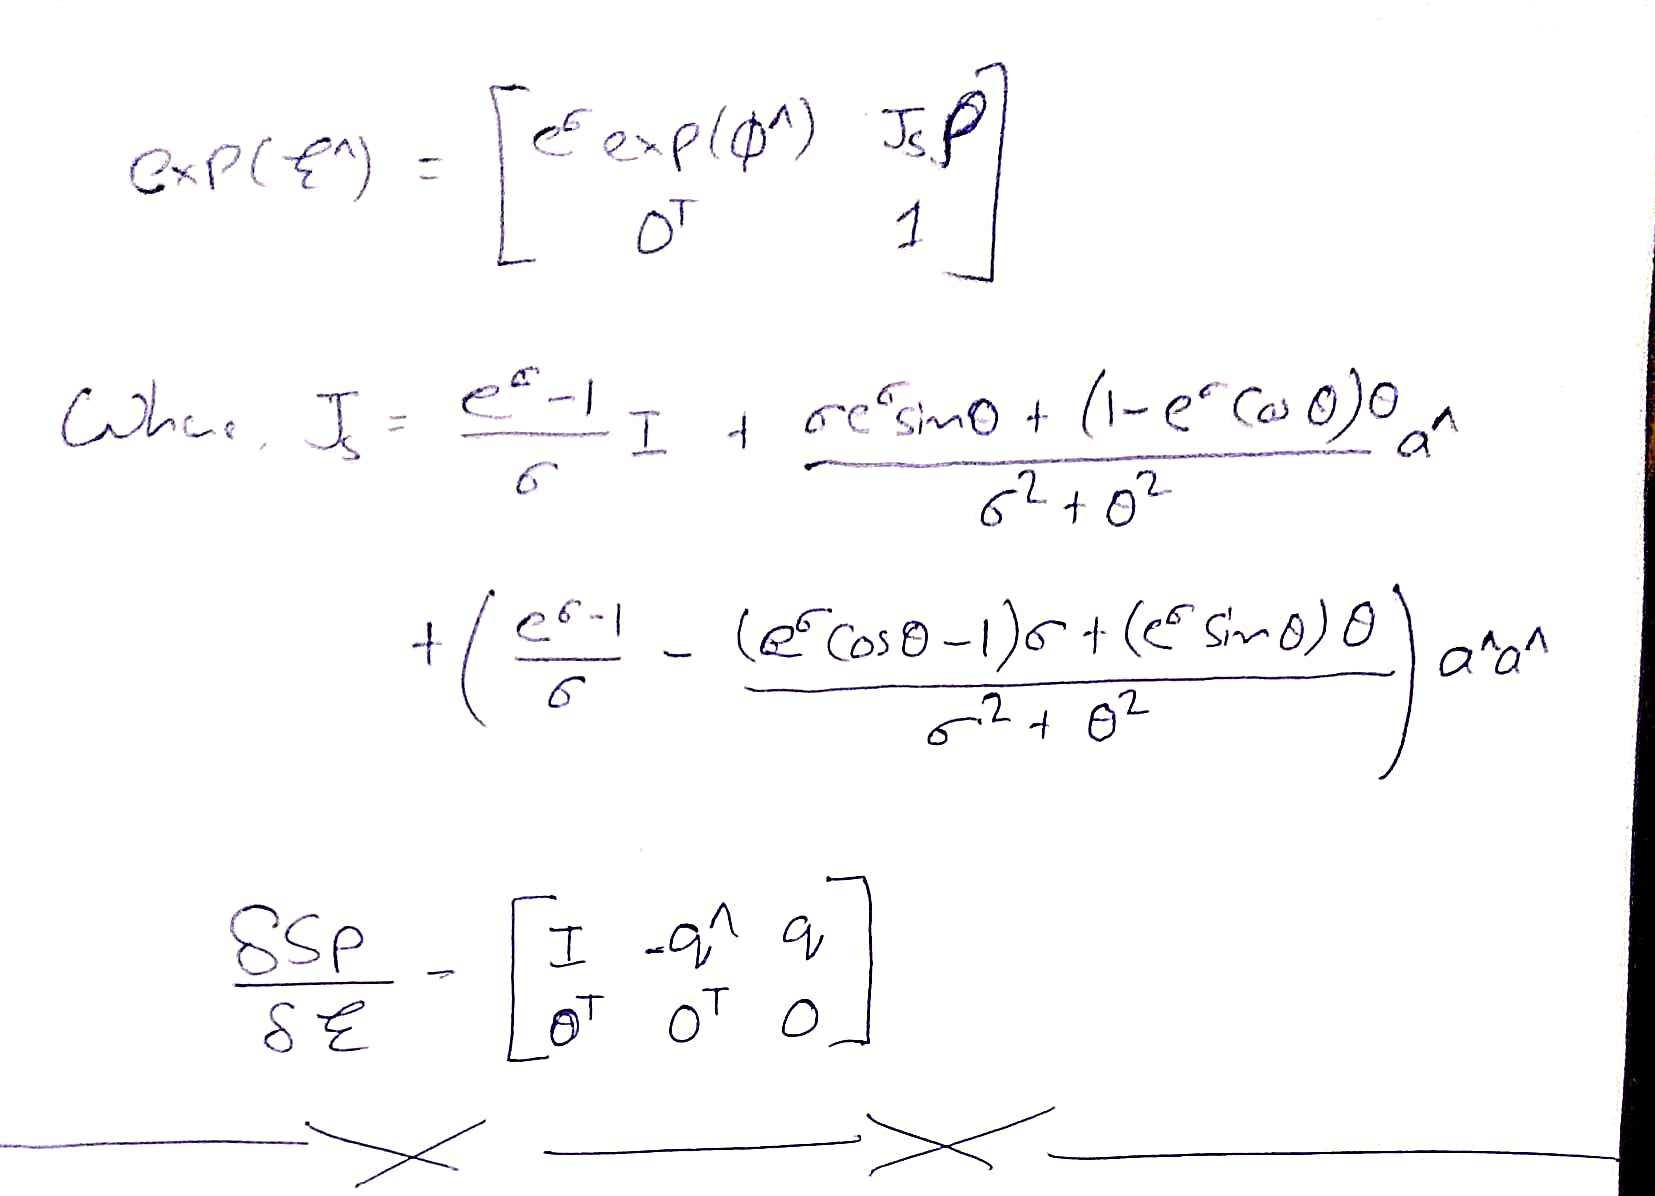 exp(ξ^) = [ e^σ exp(φ^) J_s ρ
0^T 1 ]
Where, J_s = (e^σ-1)/σ I + (σe^σ sinθ + (1-e^σ cosθ)θ)/(σ² + θ²) a^
+ ( (e^σ-1)/σ - ((e^σ cosθ-1)σ + (e^σ sinθ)θ)/(σ² + θ²) ) a^a^
δSp/δξ = [ I -q^ q
0^T 0^T 0 ]